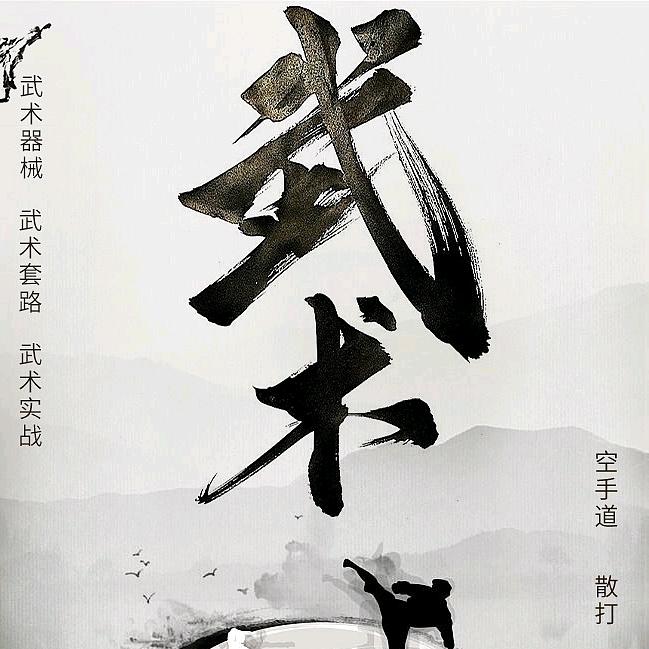 武术
武术器械 武术套路 武术实战
空手道 散打